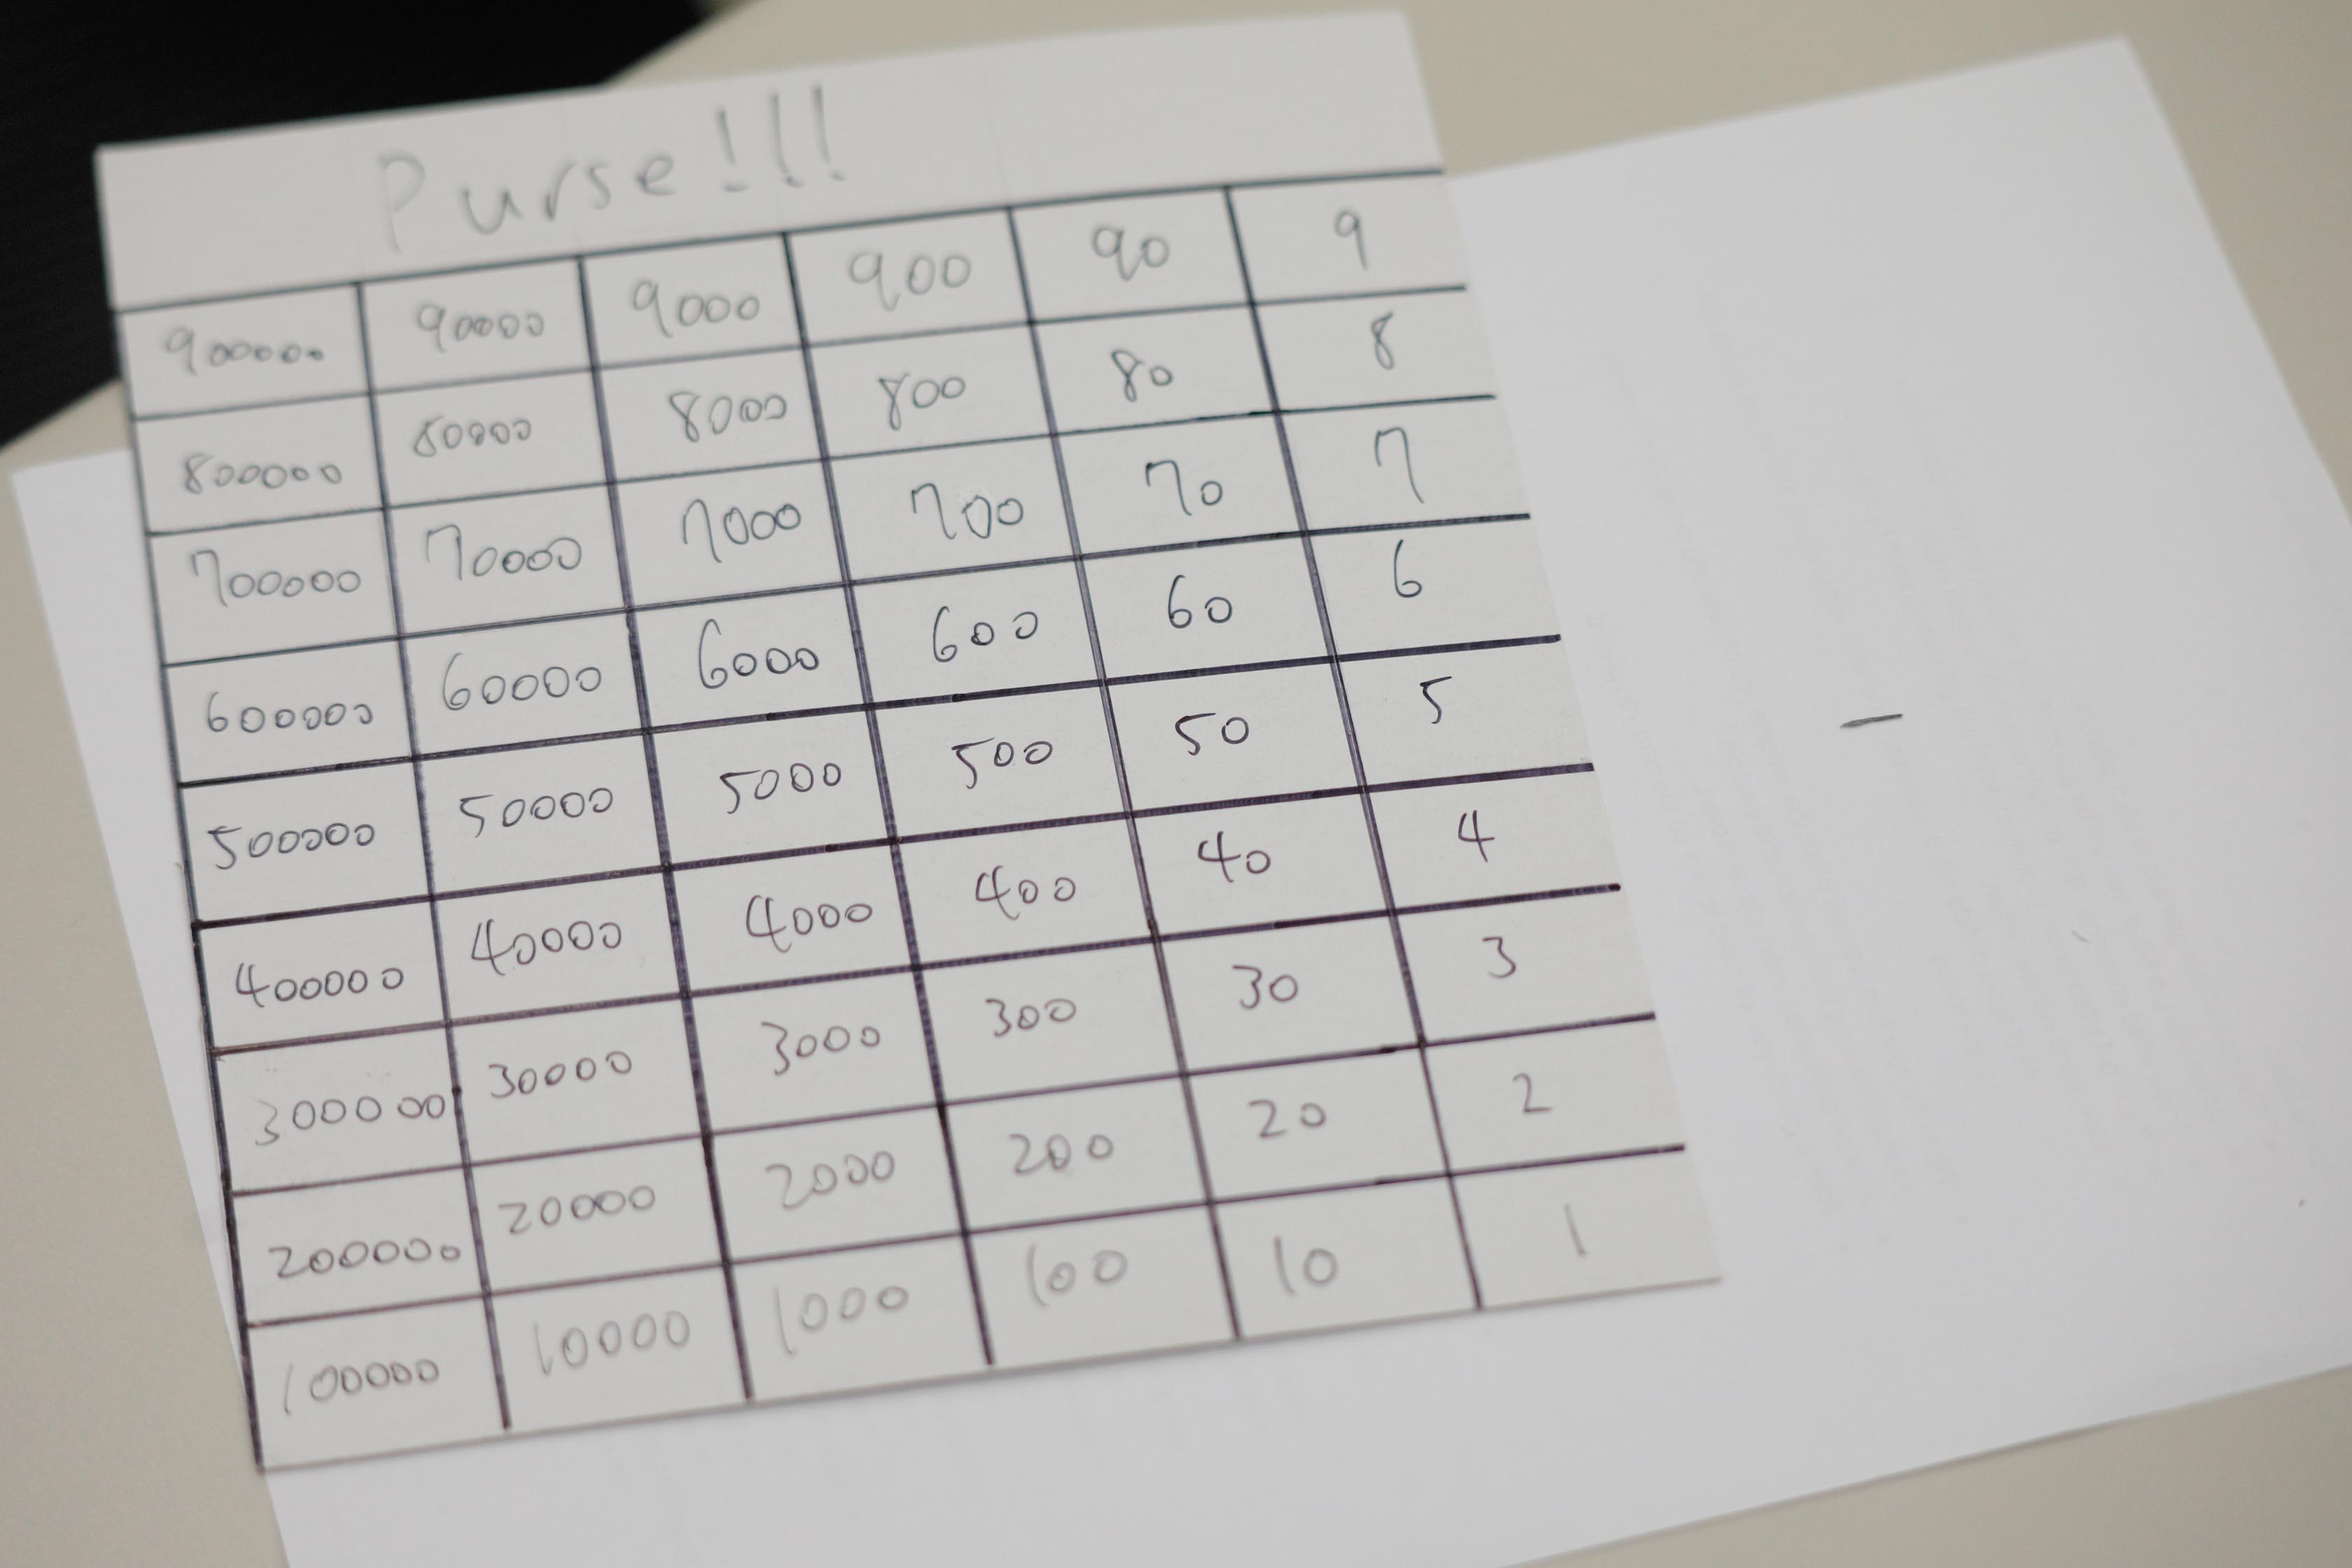 Purse!!!
900000 90000 9000 900 90 9
800000 80000 8000 800 80 8
700000 70000 7000 700 70 7
600000 60000 6000 600 60 6
500000 50000 5000 500 50 5
400000 40000 4000 400 40 4
300000 30000 3000 300 30 3
200000 20000 2000 200 20 2
100000 10000 1000 100 10 1